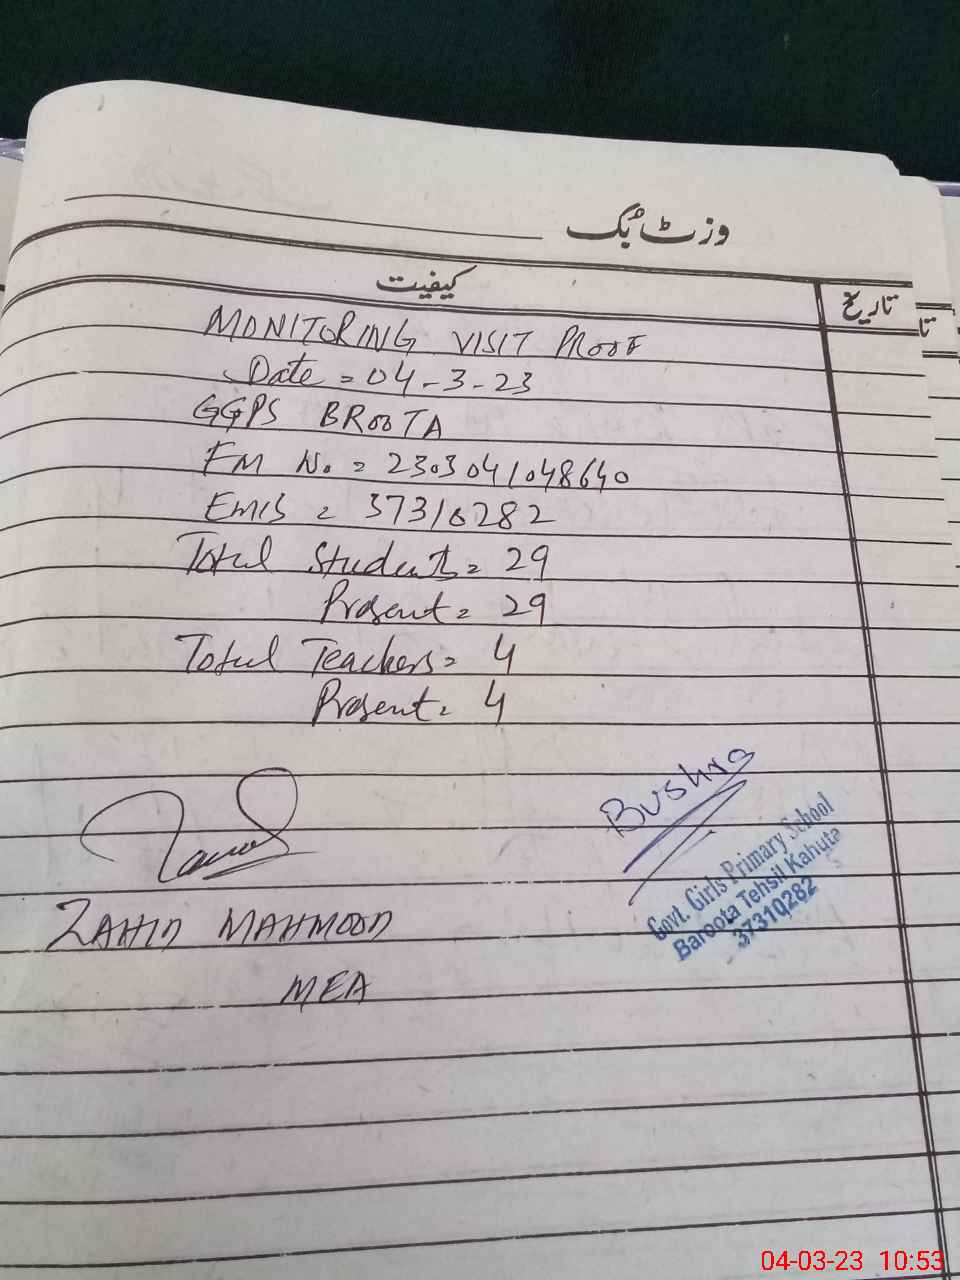 وزٹ بُک
کیفیت
تاریخ
تا
MONITORING VISIT PROOF
Date = 04-3-23
GGPS BROOTA
FM No. = 2303041048640
EMIS = 37310282
Total Students = 29
Present = 29
Total Teachers = 4
Present = 4
Bushra
Govt. Girls Primary School
Baroota Tehsil Kahuta
37310282
ZAHID MAHMOOD
MEA
04-03-23 10:53